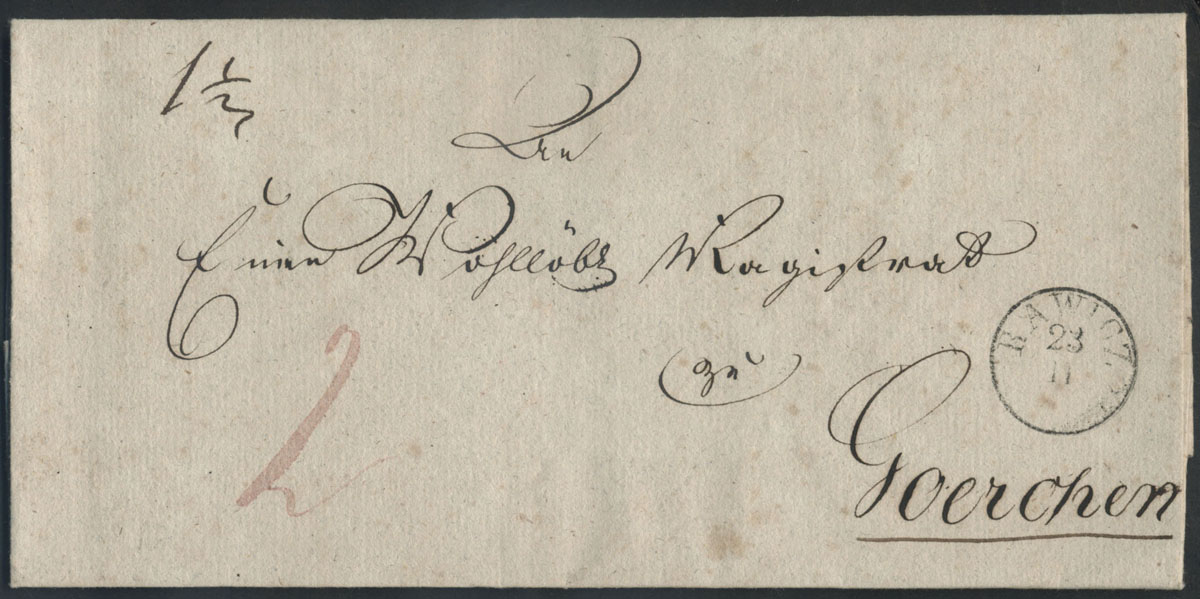 1½
An
Einen Wohllöbl
Magistrat
zu
RAWICZ
23
11
Goerchen
2